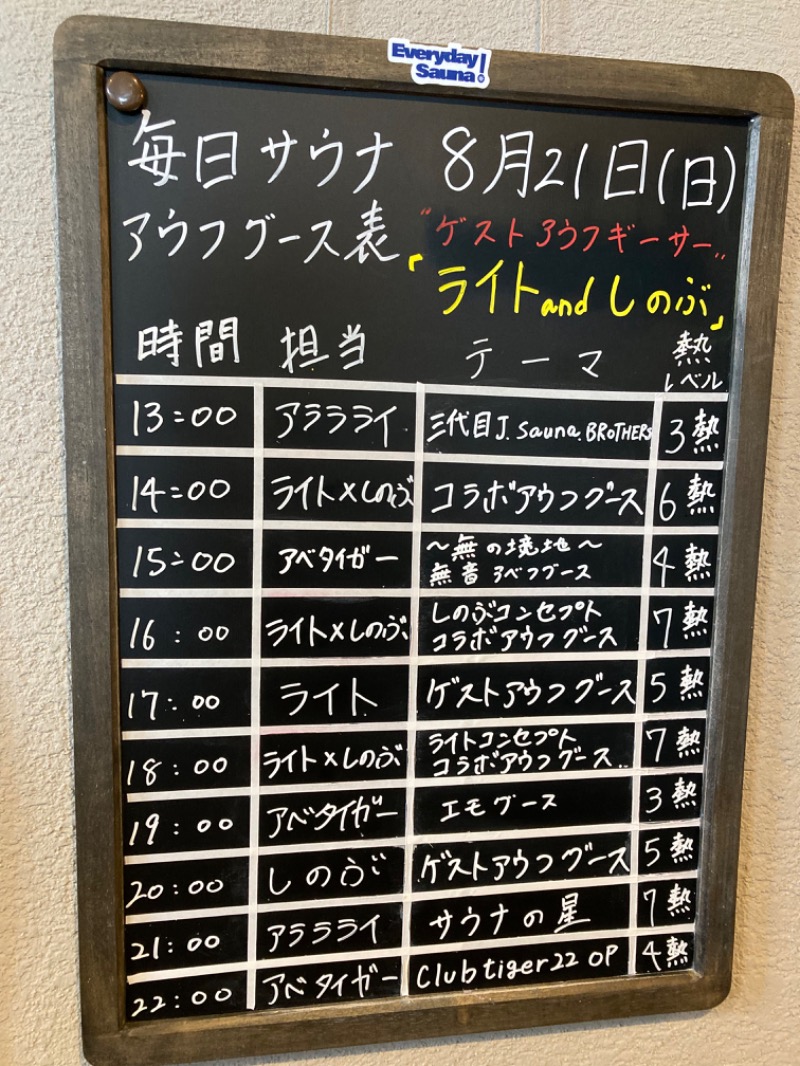 Everyday
Sauna!
毎日サウナ 8月21日(日)
アウフグース表 "ゲストアウフギーサー"
「ライトandしのぶ」
時間 担当 テーマ 熱レベル
13:00 アララライ 三代目J.Sauna.BROTHERS 3熱
14:00 ライト×しのぶ コラボアウフグース 6熱
15:00 アベタイガー 〜無の境地〜
無音アベフグース 4熱
16:00 ライト×しのぶ しのぶコンセプト
コラボアウフグース 7熱
17:00 ライト ゲストアウフグース 5熱
18:00 ライト×しのぶ ライトコンセプト
コラボアウフグース.. 7熱
19:00 アベタイガー エモグース 3熱
20:00 しのぶ ゲストアウフグース 5熱
21:00 アララライ サウナの星 7熱
22:00 アベタイガー Club tiger 22 OP 4熱